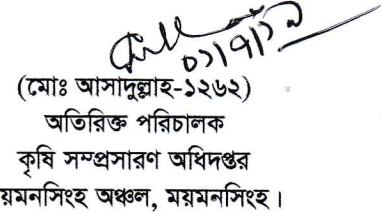 (মোঃ আসাদুল্লাহ-১২৬২)
অতিরিক্ত পরিচালক
কৃষি সম্প্রসারণ অধিদপ্তর
য়মনসিংহ অঞ্চল, ময়মনসিংহ।